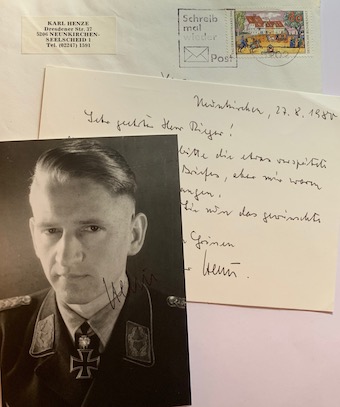 KARL HENZE
Dresdener Str. 37
5206 NEUNKIRCHEN-
SEELSCHEID 1
Tel. (02247) 1591
Schreib
mal
wieder
Post
Neunkirchen, 27. 8. 1985
Sehr geehrter Herr Rieger!
bitte die etwas verspätete
Briefes, aber wir waren
angen.
Sie nun das gewünschte
Grüßen
Henze
Henze